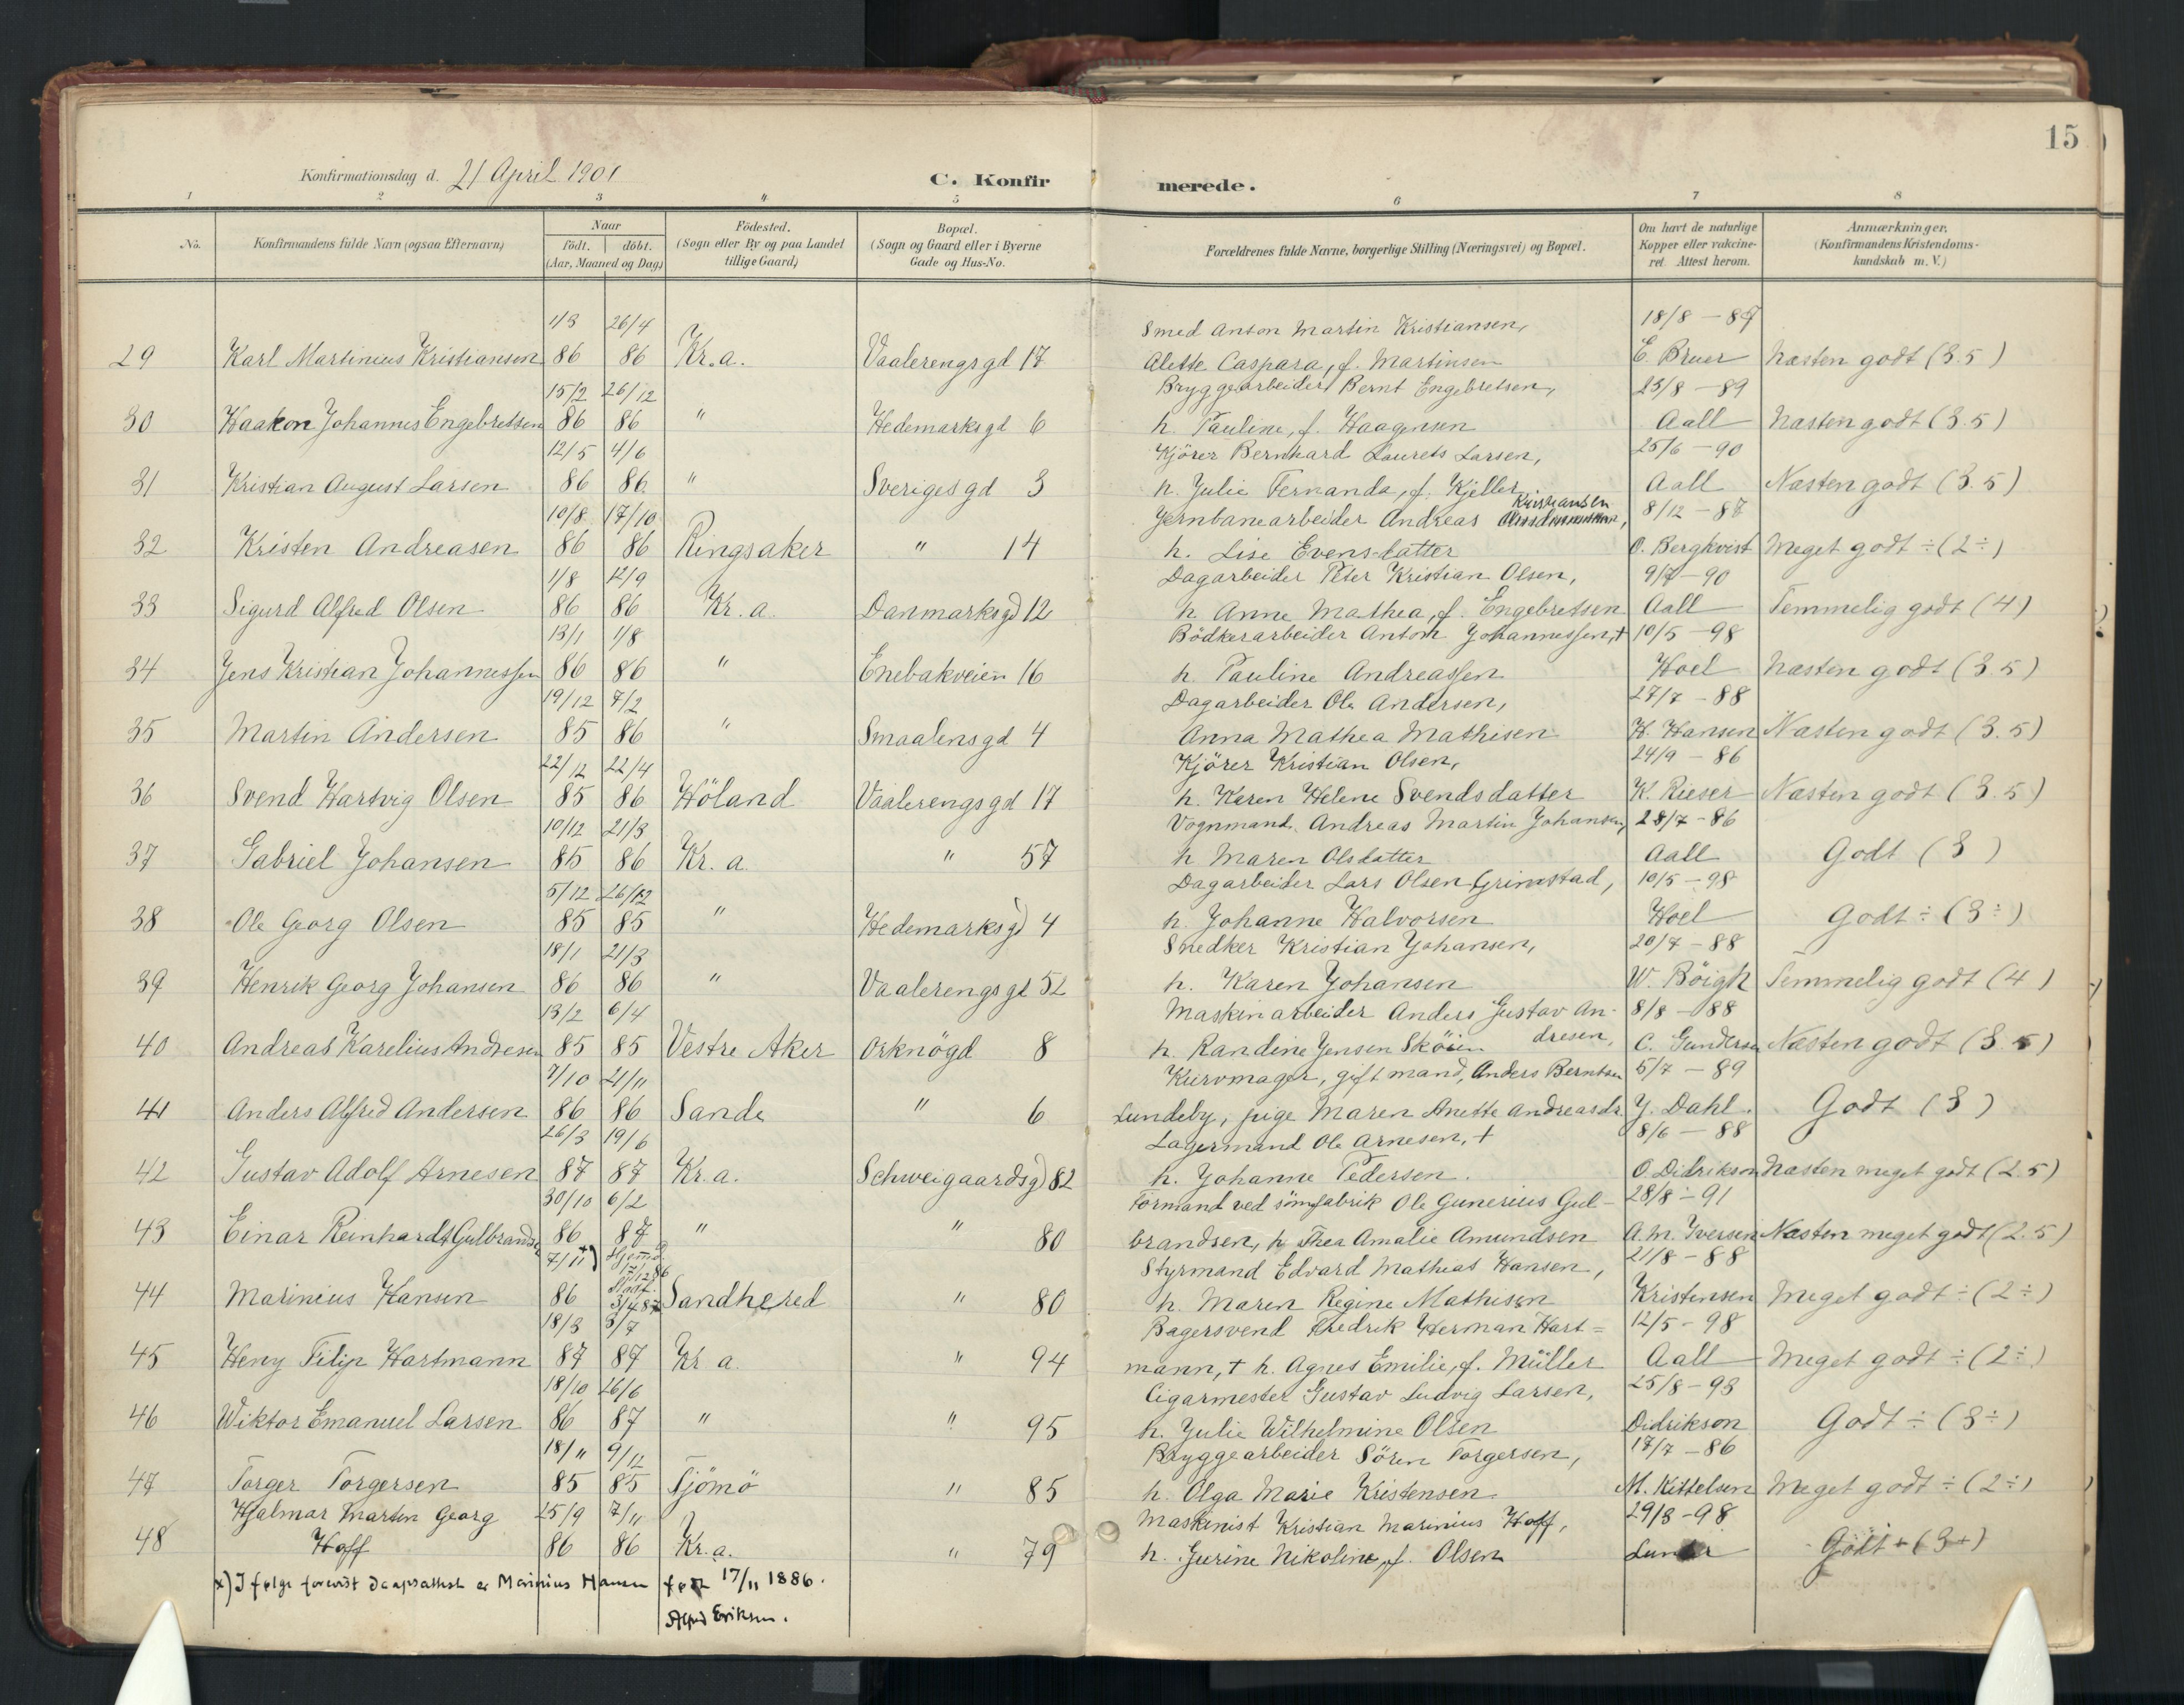 15
Konfirmationsdag d. 21 April 1901
C. Konfirmerede.
1 2 3 4 5 6 7 8
No.
Konfirmandens fulde Navn (ogsaa Efternavn)
Naar
födt. döbt.
(Aar, Maaned og Dag)
Födested.
(Sogn eller By og paa Landet
tillige Gaard)
Bopæl.
(Sogn og Gaard eller i Byerne
Gade og Hus-No.
Forældrenes fulde Navne, borgerlige Stilling (Næringsvei) og Bopæl.
Om havt de naturlige
Kopper eller vakcine-
ret Attest herom.
Anmærkninger.
(Konfirmandens Kristendoms-
kundskab m. V.)
1/3 26/4 Smed Anton Martin Kristiansen, 18/8 - 89
29 Karl Martinius Kristiansen 86 86 Kr.a. Vaalerengsgd 17 Alette Caspara, f. Martinsen E. Bruer Næsten godt (3.5)
15/2 26/12 Bryggearbeider Bernt Engebretsen, 23/8 - 89
30 Haakon Johannes Engebretsen 86 86 " Hedemarksgd 6 h. Pauline, f. Haagensen Aall Næsten godt (3.5)
12/5 4/6 Kjörer Bernhard Laurets Larsen, 25/6 - 90
31 Kristian August Larsen 86 86 " Sverigesgd 3 h. Julie Fernanda, f. Kjeller Aall Næsten godt (3.5)
10/8 17/10 Jernbanearbeider Andreas Kristiansen, 8/12 - 87
32 Kristen Andreasen 86 86 Ringsaker " 14 h. Lise Evensdatter O. Bergkvist Meget godt ÷ (2÷)
1/8 12/9 Dagarbeider Peter Kristian Olsen, 9/7 - 90
33 Sigurd Alfred Olsen 86 86 Kr.a. Danmarksgd 12 h. Anne Mathea, f. Engebretsen Aall Temmelig godt (4)
13/1 1/8 Bödkerarbeider Anton Johannessen, † 10/5 - 98
34 Jens Kristian Johannessen 86 86 " Enebakveien 16 h. Pauline Andreassen Hoel Næsten godt (3.5)
19/12 7/2 Dagarbeider Ole Andersen, 27/7 - 88
35 Martin Andersen 85 86 " Smaalensgd 4 Anna Mathea Mathisen H. Hansen Næsten godt (3.5)
22/12 22/4 Kjörer Kristian Olsen, 24/9 - 86
36 Svend Hartvig Olsen 85 86 Höland Vaalerengsgd 17 h. Karen Helene Svendsdatter K. Rieser Næsten godt (3.5)
10/12 21/3 Vognmand. Andreas Martin Johansen, 28/7 - 86
37 Gabriel Johansen 85 86 Kr. a. " 57 h Maren Olsdatter Aall Godt (3)
5/12 26/12 Dagarbeider Lars Olsen Grimstad, 10/5 - 98
38 Ole Georg Olsen 85 85 " Hedemarksgd 4 h. Johanne Halvorsen Hoel Godt ÷ (3÷)
18/1 21/3 Snedker Kristian Johansen, 20/7 - 88
39 Henrik Georg Johansen 86 86 " Vaalerengsgd 52 h. Karen Johansen W. Böigh Temmelig godt (4)
13/2 6/4 Maskinarbeider Anders Gustav An- 8/8 - 88
40 Andreas Karelius Andresen 85 85 Vestre Aker Orknögd 8 dresen, h. Randine Jensen Sköien C. Gundersen Næsten godt (3.5)
7/10 21/11 Kurvmager, gift mand, Anders Berntsen 5/7 - 89
41 Anders Alfred Andersen 86 86 Sande " 6 Lundeby, pige Maren Anette Andreasdr. J. Dahl. Godt (3)
26/3 19/6 Lagermand Ole Arnesen, † 8/6 - 88
42 Gustav Adolf Arnesen 87 87 Kr.a. Schweigaardsgd 82 h. Johanne Pedersen. O. Didrikson Næsten meget godt (2.5)
30/10 6/2 Formand ved sömfabrik Ole Gunerius Gul- 28/8 - 91
43 Einar Reinhardt Gulbrandsen 86 87 " " 80 brandsen, h. Thea Amalie Amundsen A.M. Iversen Næsten meget godt (2.5)
7/11 x) Hjemmed. 17/12 86 Styrmand Edvard Mathias Hansen, 21/8 - 88
44 Marinius Hansen 86 Stadf. 3/4 87 Sandhered " 80 h. Maren Regine Mathisen Kristensen Meget godt ÷ (2÷)
18/3 3/7 Bagersvend Fredrik Herman Hart= 12/5 - 98
45 Heny Filip Hartmann 87 87 Kr a. " 94 mann, † h. Agnes Emilie, f. Müller Aall Meget godt ÷ (2÷)
18/10 26/6 Cigarmester Gustav Ludvig Larsen, 25/8 - 93
46 Wiktor Emanuel Larsen 86 87 " " 95 h. Julie Wilhelmine Olsen Didrikson Godt ÷ (3÷)
18/11 9/12 Bryggearbeider Sören Torgersen, 17/7 - 86
47 Torger Torgersen 85 85 Tjömö " 85 h. Olga Marie Kristensen. M. Kittelsen Meget godt ÷ (2÷)
Hjalmar Martin Georg 25/9 7/11 Maskinist Kristian Marinius Hoff, 29/3 - 98
48 Hoff 86 86 Kr.a. " 79 h. Gurine Nikoline, f. Olsen Godt + (3+)
x) Ifølge forevist daapsattest er Marinius Hansen født 17/11 1886.
Alfred Eriksen.